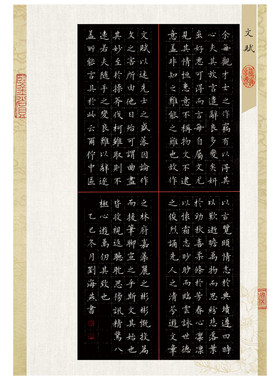 文賦
余每觀才士之作竊有以得其
心夫其放言遣辭良多變矣妍
蚩好惡可得而言每自屬文尤
見其情恒患意不稱物文不逮
意蓋非知之難能之難也故作
文賦以述先士之盛藻因論作
文之害所由他日殆可謂曲盡
其妙至於操斧伐柯雖取則不
遠若夫隨手之變良難以辭逮
蓋所能言具於此云爾佇中區
以玄覽頤情志於典墳遵四時
以歎逝瞻萬物而思紛悲落葉
於勁秋喜柔條於芳春心凜凜
以懷霜志眇眇而臨雲詠世德
之俊烈誦先人之清芬遊文章
之林府嘉藻麗之彬彬慨投篇
而援筆聊宣之乎斯文其始也
皆收視返聽耽思傍訊精騖八
極心遊萬仞其致也
乙巳冬月劉海燕書